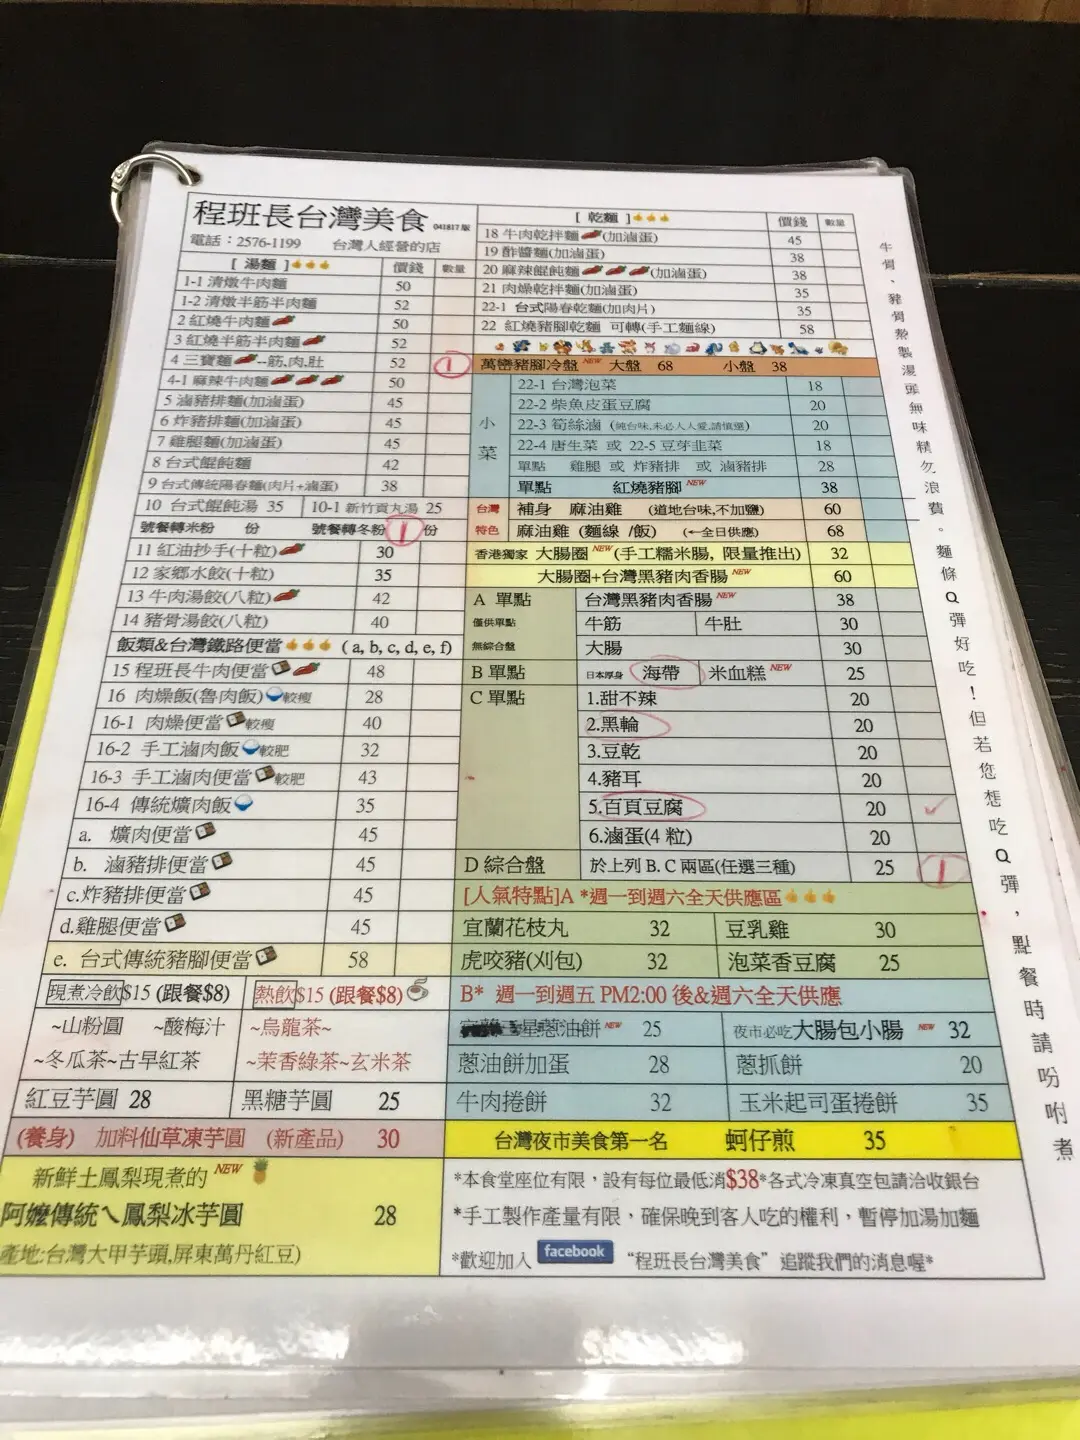 程班長台灣美食 041817版
電話：2576-1199 台灣人經營的店
[ 湯麵 ] 價錢 數量
1-1 清燉牛肉麵 50
1-2 清燉半筋半肉麵 52
2 紅燒牛肉麵 50
3 紅燒半筋半肉麵 52
4 三寶麵--筋,肉,肚 52 1
4-1 麻辣牛肉麵 50
5 滷豬排麵(加滷蛋) 45
6 炸豬排麵(加滷蛋) 45
7 雞腿麵(加滷蛋) 45
8 台式餛飩麵 42
9 台式傳統陽春麵(肉片+滷蛋) 38
10 台式餛飩湯 35 10-1 新竹貢丸湯 25
號餐轉米粉 份 號餐轉冬粉 1 份
11 紅油抄手(十粒) 30
12 家鄉水餃(十粒) 35
13 牛肉湯餃(八粒) 42
14 豬骨湯餃(八粒) 40
飯類&台灣鐵路便當 ( a, b, c, d, e, f)
15 程班長牛肉便當 48
16 肉燥飯(魯肉飯) 較瘦 28
16-1 肉燥便當 較瘦 40
16-2 手工滷肉飯 較肥 32
16-3 手工滷肉便當 較肥 43
16-4 傳統爌肉飯 35
a. 爌肉便當 45
b. 滷豬排便當 45
c.炸豬排便當 45
d.雞腿便當 45
e. 台式傳統豬腳便當 58
現煮冷飲$15 (跟餐$8) 熱飲$15 (跟餐$8)
~山粉圓 ~酸梅汁 ~烏龍茶~
~冬瓜茶~古早紅茶 ~茉香綠茶~玄米茶
紅豆芋圓 28 黑糖芋圓 25
(養身) 加料仙草凍芋圓 (新產品) 30
新鮮土鳳梨現煮的 NEW
阿嬤傳統ㄟ鳳梨冰芋圓 28
產地:台灣大甲芋頭,屏東萬丹紅豆)
[ 乾麵 ] 價錢 數量
18 牛肉乾拌麵(加滷蛋) 45
19 酢醬麵(加滷蛋) 38
20 麻辣餛飩麵(加滷蛋) 38
21 肉燥乾拌麵(加滷蛋) 35
22-1 台式陽春乾麵(加肉片) 35
22 紅燒豬腳乾麵 可轉(手工麵線) 58
萬巒豬腳冷盤 NEW 大盤 68 小盤 38
小菜
22-1 台灣泡菜 18
22-2 柴魚皮蛋豆腐 20
22-3 筍絲滷 (純台味,未必人人愛,請慎選) 20
22-4 唐生菜 或 22-5 豆芽韭菜 18
單點 雞腿 或 炸豬排 或 滷豬排 28
單點 紅燒豬腳 NEW 38
台灣 補身 麻油雞 (道地台味,不加鹽) 60
特色 麻油雞 (麵線 /飯) (←全日供應) 68
香港獨家 大腸圈 NEW (手工糯米腸, 限量推出) 32
大腸圈+台灣黑豬肉香腸 NEW 60
A 單點 台灣黑豬肉香腸 NEW 38
僅供單點 牛筋 牛肚 30
無綜合盤 大腸 30
B 單點 日本厚身 海帶 米血糕 NEW 25
C 單點 1.甜不辣 20
2.黑輪 20
3.豆乾 20
4.豬耳 20
5.百頁豆腐 20
6.滷蛋(4 粒) 20
D 綜合盤 於上列 B. C 兩區(任選三種) 25 1
[人氣特點]A *週一到週六全天供應區
宜蘭花枝丸 32 豆乳雞 30
虎咬豬(刈包) 32 泡菜香豆腐 25
B* 週一到週五 PM2:00 後&週六全天供應
星蔥油餅 NEW 25 夜市必吃大腸包小腸 NEW 32
蔥油餅加蛋 28 蔥抓餅 20
牛肉捲餅 32 玉米起司蛋捲餅 35
台灣夜市美食第一名 蚵仔煎 35
*本食堂座位有限，設有每位最低消$38*各式冷凍真空包請洽收銀台
*手工製作產量有限，確保晚到客人吃的權利，暫停加湯加麵
*歡迎加入 facebook “程班長台灣美食” 追蹤我們的消息喔*
牛骨、豬骨熬製湯頭無味精勿浪費。麵條Q彈好吃！但若您想吃Q彈，點餐時請吩咐煮